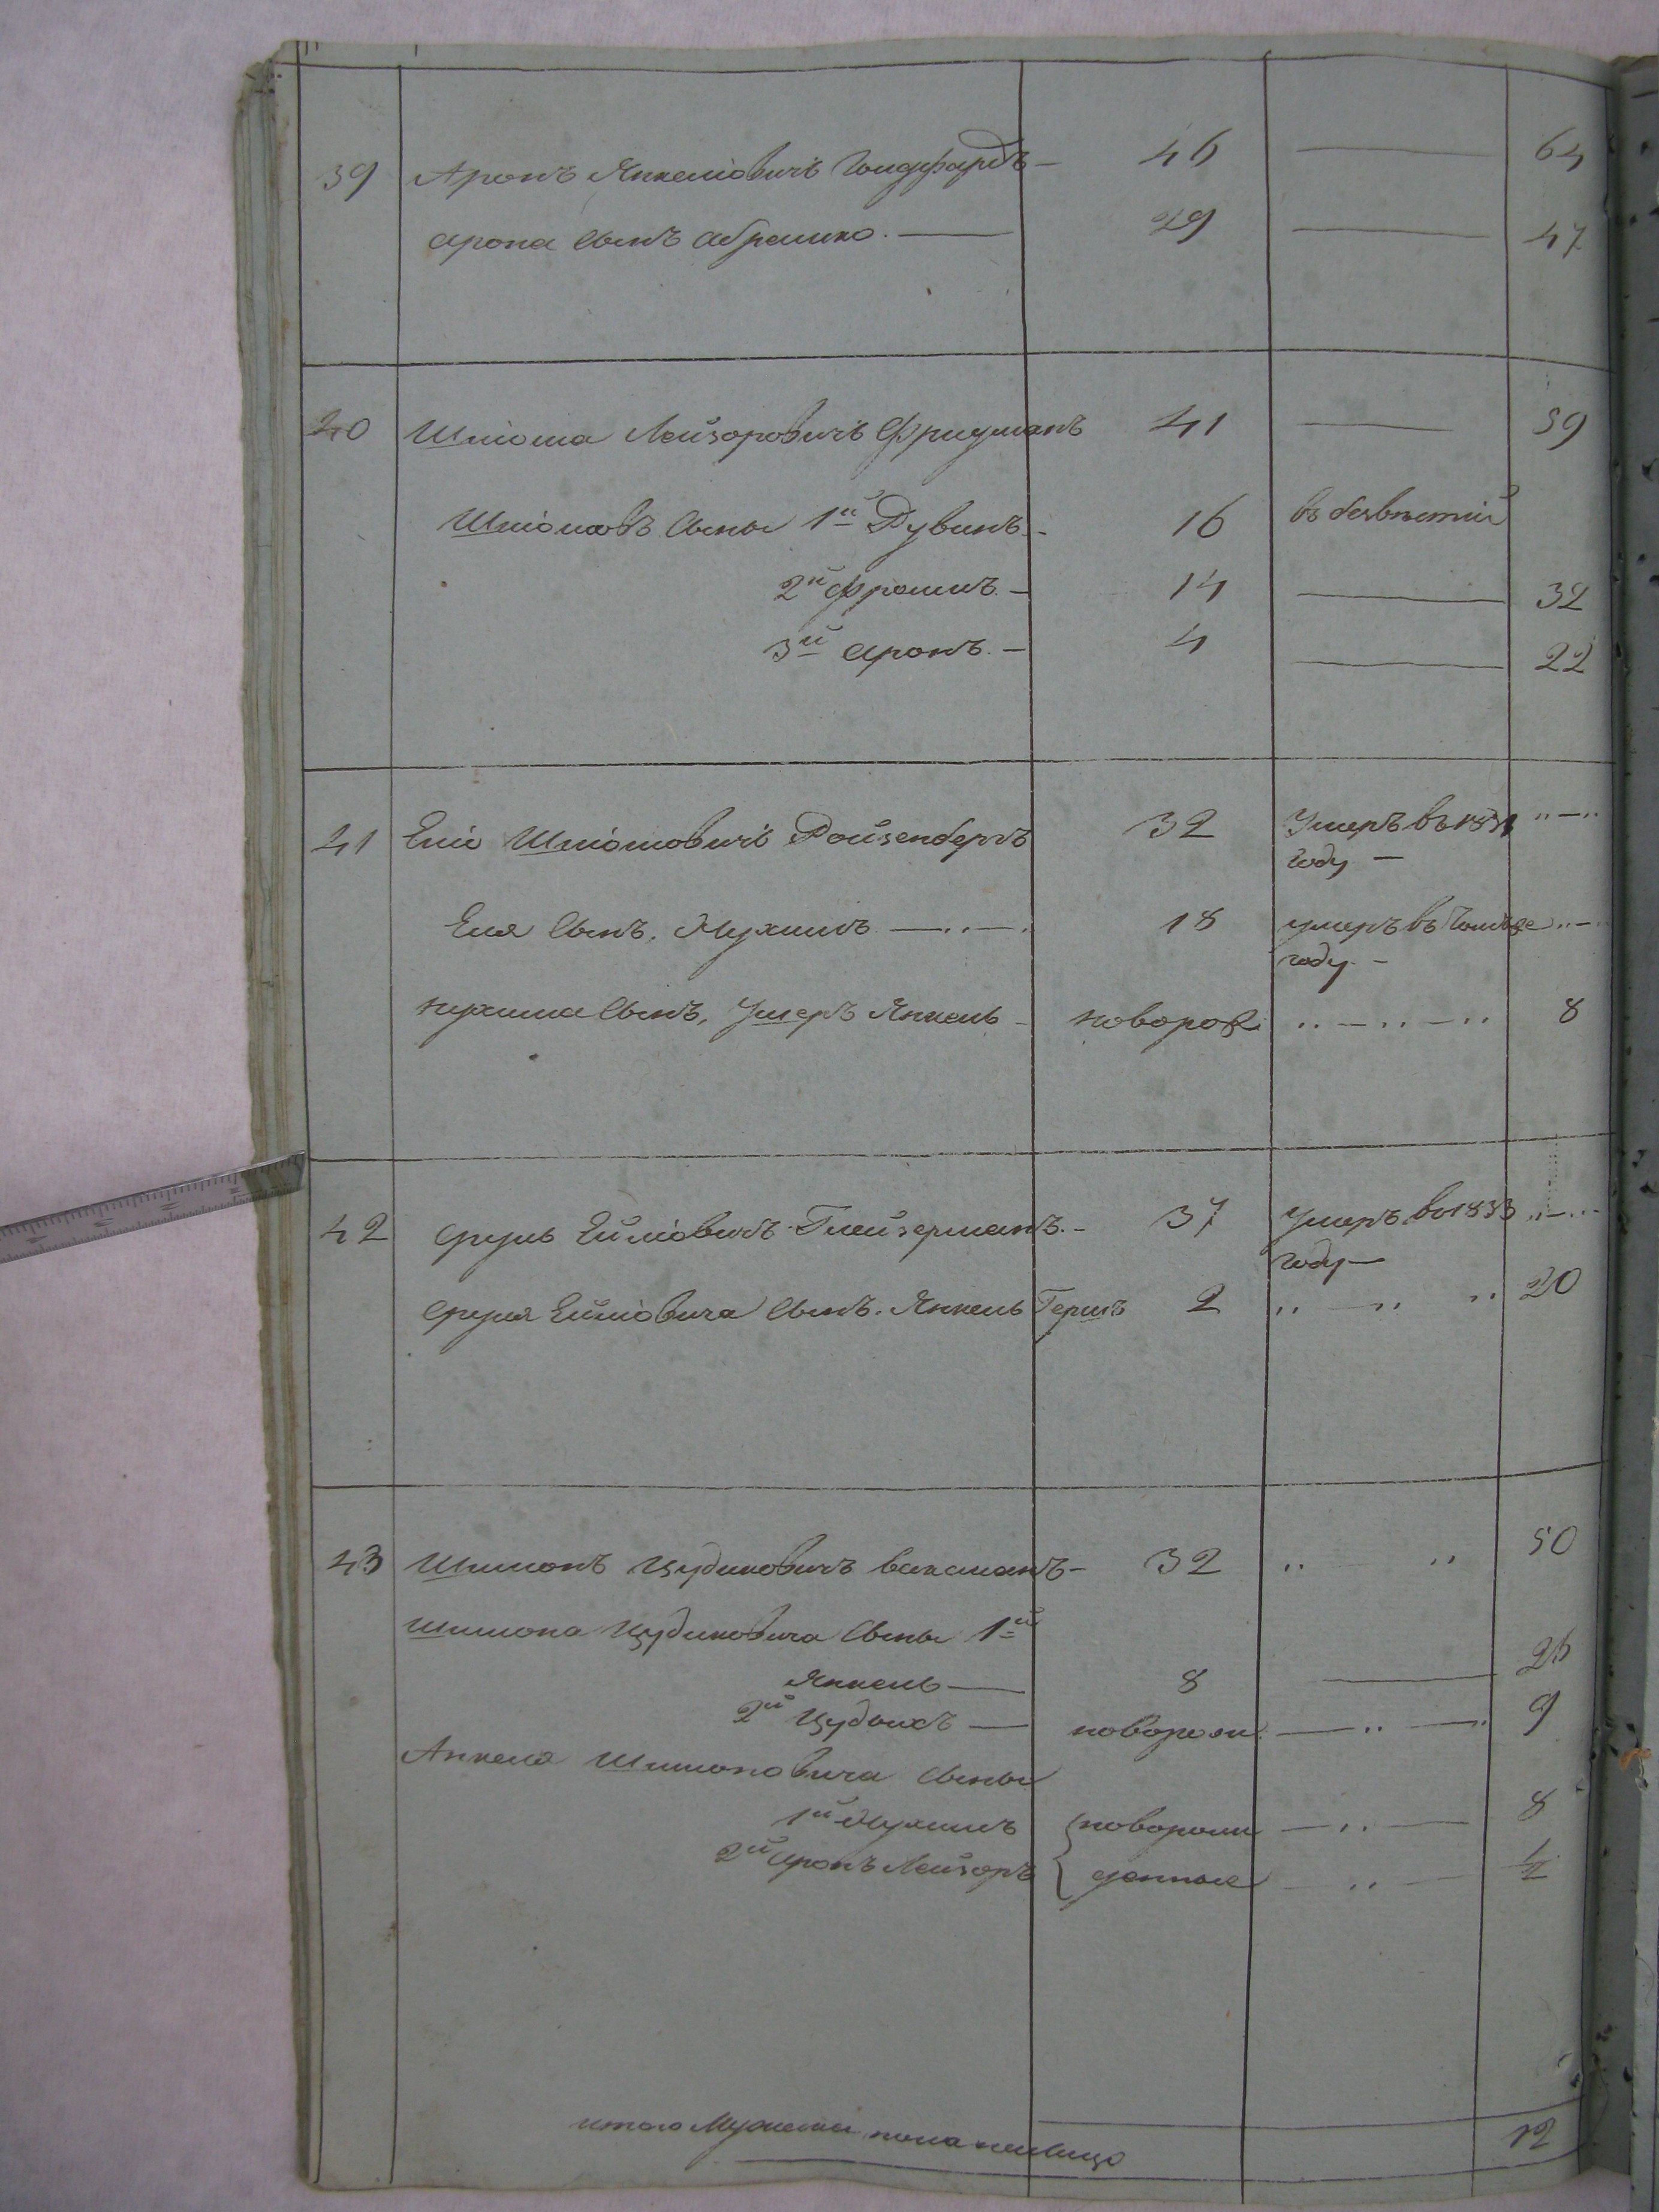 39 Аронъ Янкеліовичъ Голдфарбъ — 46 — 64
Арона сынъ Абрамко. — 29 — 47
40 Шліома Лейзоровичъ Фридманъ 41 — 59
Шліомовъ сыны 1й Рувинъ — 16 въ безвѣстій
2й Фроимъ — 14 — 32
3й Аронъ — 4 — 22
41 Еліо Шліомовичъ Ройзенбергъ 32 Умеръ въ 1831 году —
Еля сынъ. Нухимъ 18 умеръ въ томъже году —
Нухима сынъ, Ушеръ Янкель — новорож. 8
42 Сруль Еиліовичъ Глейзерманъ — 37 Умеръ въ 1833 году —
Сруля Еиліовича сынъ. Янкель Гершъ 2 20
43 Шимонъ Цудиковичъ Ваксманъ — 32 50
Шимона Цудиковича сыны 1й
Янкель — 8 — 26
2й Цудыкъ — новорож. 9
Анкеля Шимоновича сыны
1й Нухимъ новорож 8
2й Аронъ Лейзоръ денные 1/2
итого Мужеска пола налицо 12